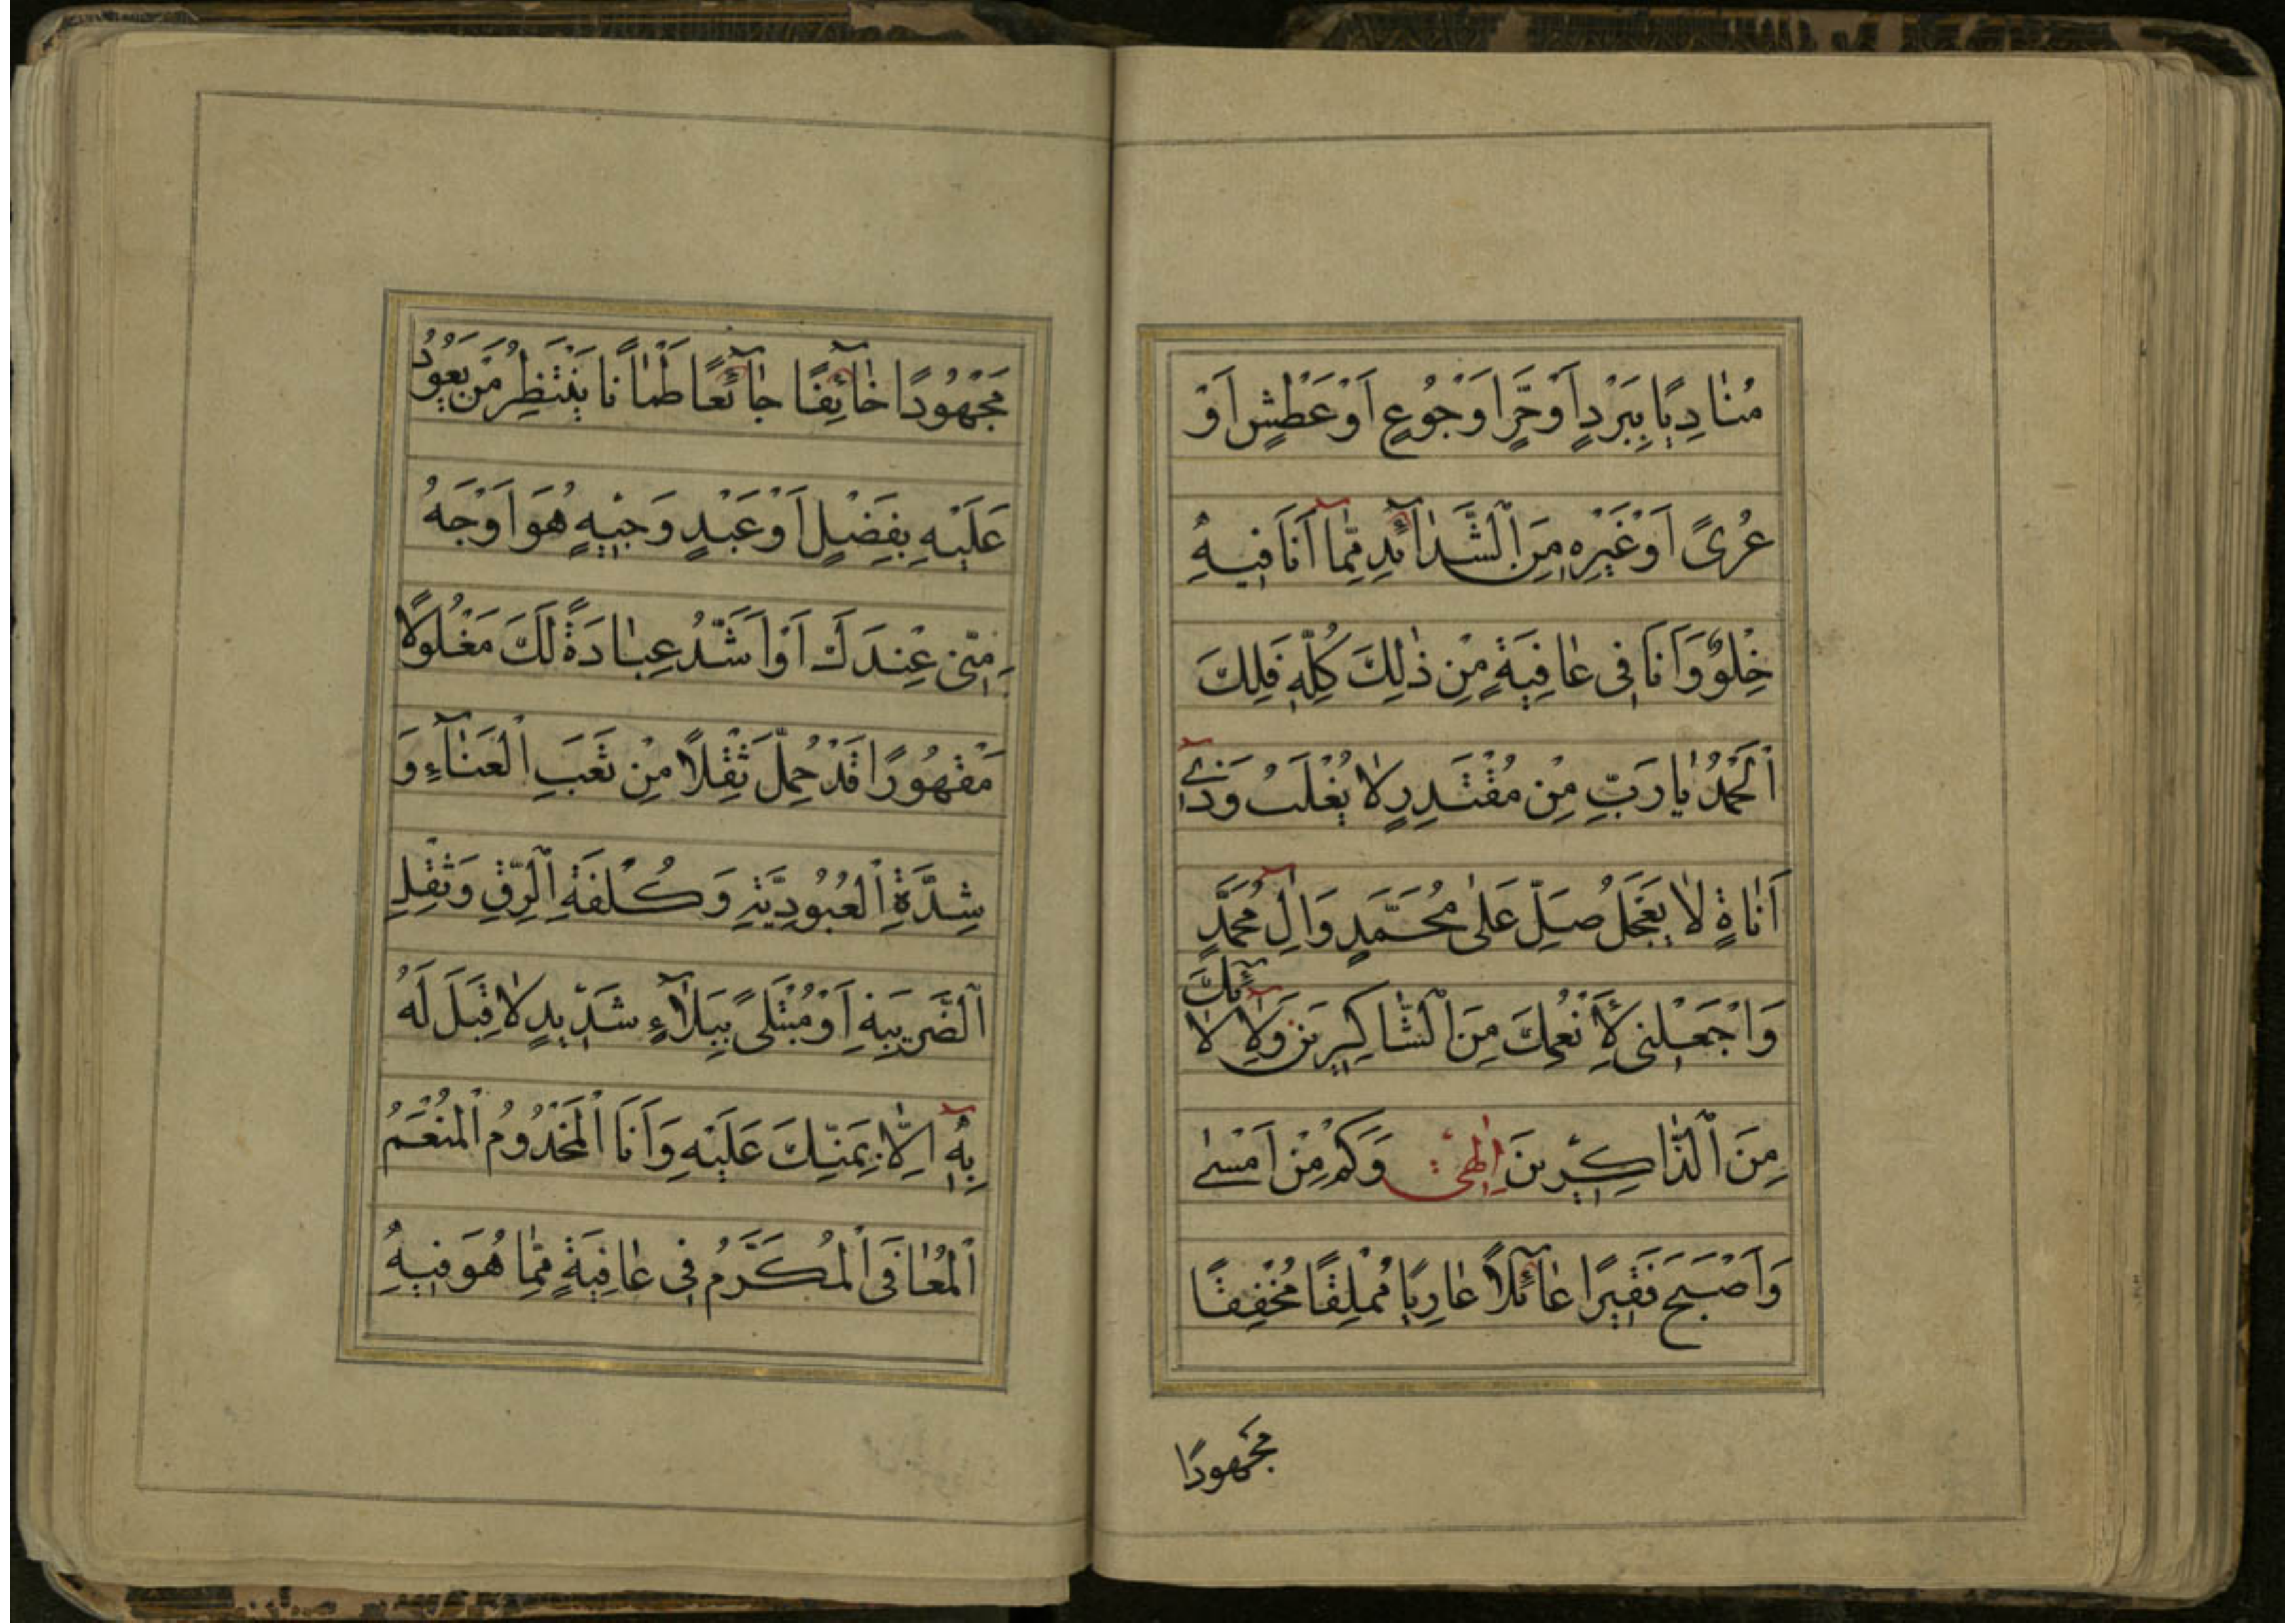 مُنٰادِيًا بِبَرْدٍ اَوْ حَرٍّ اَوْ جُوُعٍ اَوْ عَطْشٍ اَوْ
عُرىً اَوْ غَيْرِهِ مِنَ الشَّدٰآئِدِ مِمّٰآ اَنَا فيهِ
خِلْوٌ وَاَنَا فى عٰافِيَةٍ مِنْ ذٰلِكَ كُلِّهِ فَلِكَ
الْحَمْدُ يٰا رَبِّ مِنْ مُقْتَدِرٍ لٰا يُغْلَبُ وَذى
اَنٰاةٍ لٰا يَعْجَلُ صَلِّ عَلىٰ مُحَمَّدٍ وَاٰلِ مُحَمَّدٍ
وَاجْعَلْنى لِاَنْعُمِكَ مِنَ الشّٰاكِرينَ وَلِاٰلٰآئِكَ
مِنَ الذّٰاكِرينَ اِلٰهى وَكَمْ مِنْ اَمْسىٰ
وَاَصْبَحَ فَقيرًا عٰآئِلًا عٰارِيًا مُمْلِقًا مُخْفِقًا
مجهودًا
مَجْهُودًا خٰآئِفًا جٰآئِعًا ظَمْاٰنًا يَنْتَظِرُ مَنْ يَعُودُ
عَلَيْهِ بِفَضْلٍ اَوْ عَبْدٍ وَجيهٍ هُوَ اَوْجَهُ
مِنّى عِنْدَكَ اَوْ اَشَدُّ عِبٰادَةً لَكَ مَغْلُولًا
مَقْهُورًا قَدْ حُمِّلَ ثِقْلًا مِنْ تَعَبِ الْعَنٰآءِ وَ
شِدَّةِ الْعُبُودِيَّةِ وَكُلْفَةِ الرِّقِّ وَثِقْلِ
الضَّريبَةِ اَوْ مُبْتَلىً بِبَلٰآءٍ شَديدٍ لٰا قِبَلَ لَهُ
بِهِ اِلّٰا بِمَنِّكَ عَلَيْهِ وَاَنَا الْمَخْدُومُ الْمُنْعَمُ
الْمُعٰافَى الْمُكَرَّمُ فى عٰافِيَةٍ مِمّٰا هُوَ فيهِ